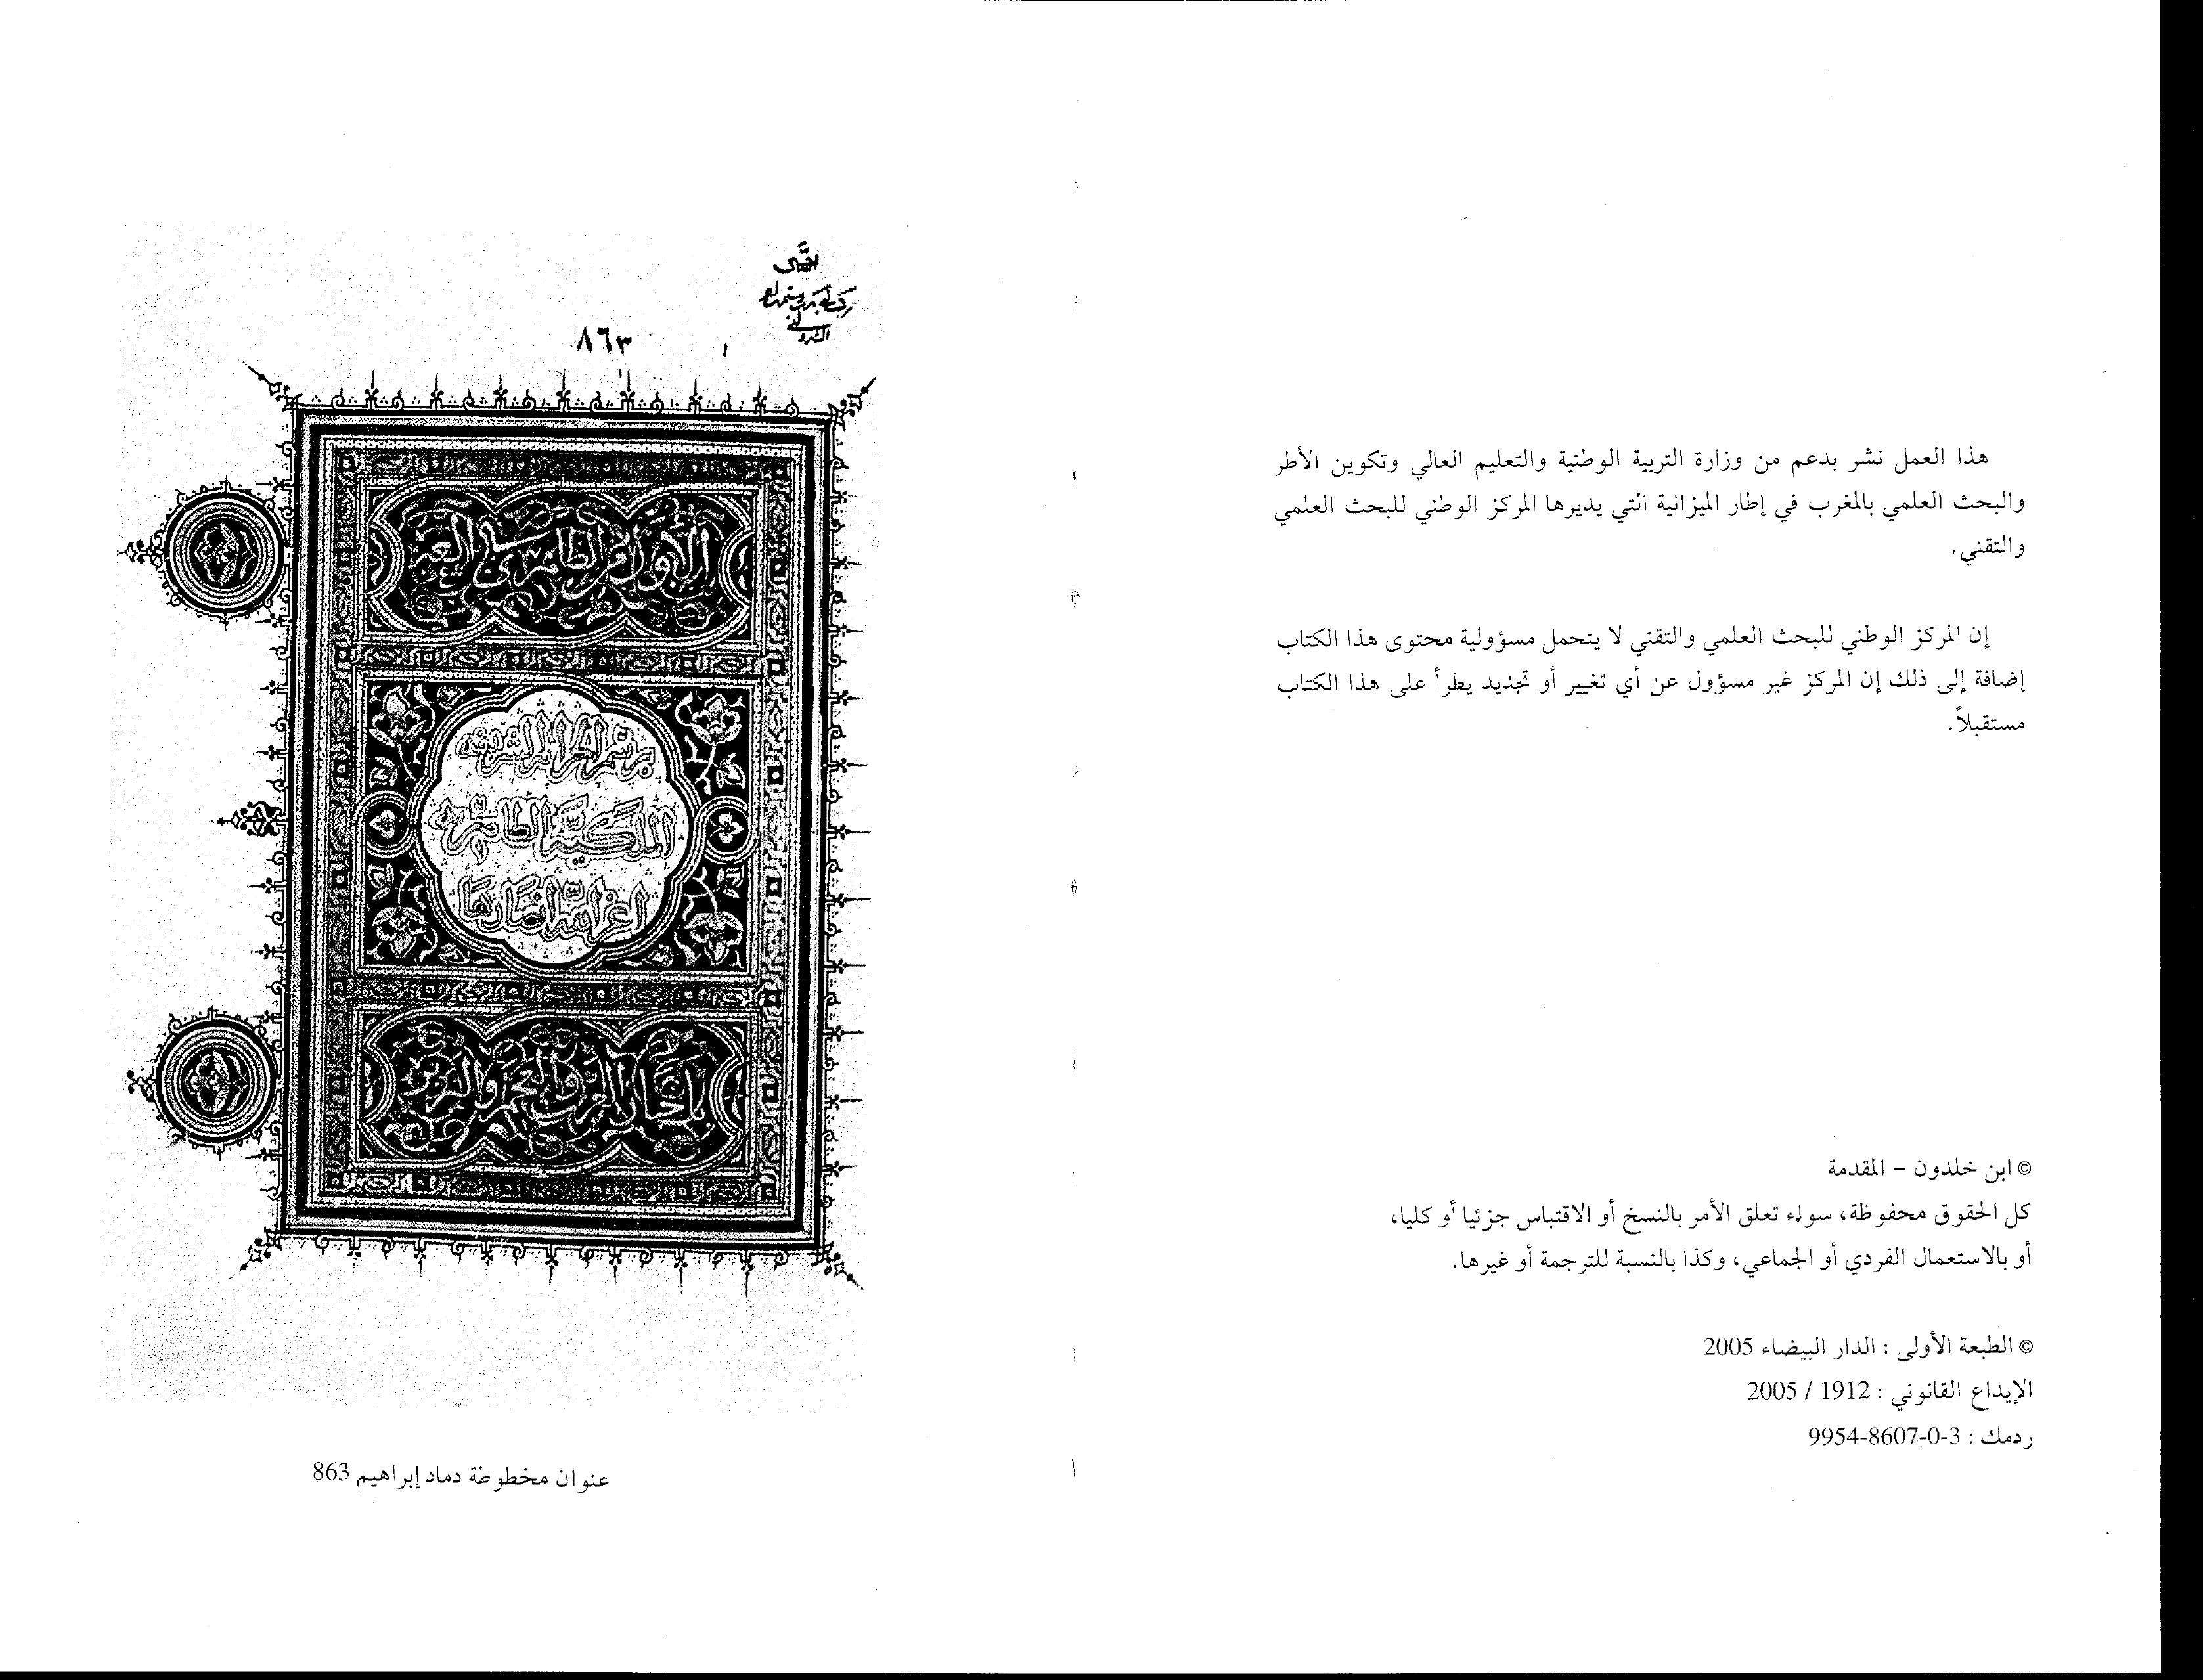 هذا العمل نشر بدعم من وزارة التربية الوطنية والتعليم العالي وتكوين الأطر
والبحث العلمي بالمغرب في إطار الميزانية التي يديرها المركز الوطني للبحث العلمي
والتقني.
إن المركز الوطني للبحث العلمي والتقني لا يتحمل مسؤولية محتوى هذا الكتاب
إضافة إلى ذلك إن المركز غير مسؤول عن أي تغيير أو تجديد يطرأ على هذا الكتاب
مستقبلاً.
© ابن خلدون – المقدمة
كل الحقوق محفوظة، سواء تعلق الأمر بالنسخ أو الاقتباس جزئيا أو كليا،
أو بالاستعمال الفردي أو الجماعي، وكذا بالنسبة للترجمة أو غيرها.
© الطبعة الأولى : الدار البيضاء 2005
الإيداع القانوني : 1912 / 2005
ردمك : 3-0-8607-9954
٨٦٣
١
عنوان مخطوطة دماد إبراهيم 863